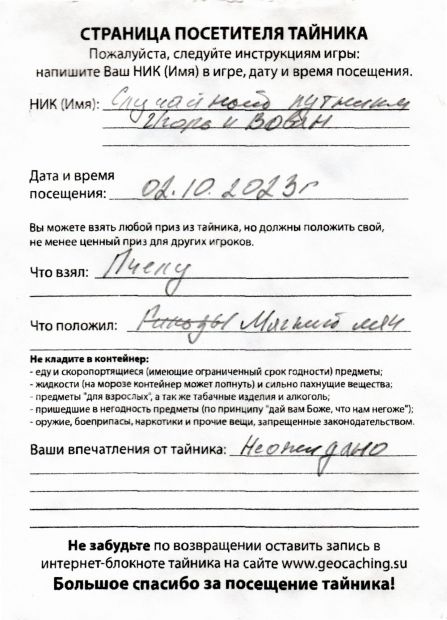 СТРАНИЦА ПОСЕТИТЕЛЯ ТАЙНИКА
Пожалуйста, следуйте инструкциям игры:
напишите Ваш НИК (Имя) в игре, дату и время посещения.
НИК (Имя): Случайной путники
Игорь и Вовян
Дата и время
посещения: 02.10.2023г
Вы можете взять любой приз из тайника, но должны положить свой,
не менее ценный приз для других игроков.
Что взял: Пчелу
Что положил: Мягкий мяч
Не кладите в контейнер:
- еду и скоропортящиеся (имеющие ограниченный срок годности) предметы;
- жидкости (на морозе контейнер может лопнуть) и сильно пахнущие вещества;
- предметы "для взрослых", а так же табачные изделия и алкоголь;
- пришедшие в негодность предметы (по принципу "дай вам Боже, что нам негоже");
- оружие, боеприпасы, наркотики и прочие вещи, запрещенные законодательством.
Ваши впечатления от тайника: Неожидано
Не забудьте по возвращении оставить запись в
интернет-блокноте тайника на сайте www.geocaching.su
Большое спасибо за посещение тайника!